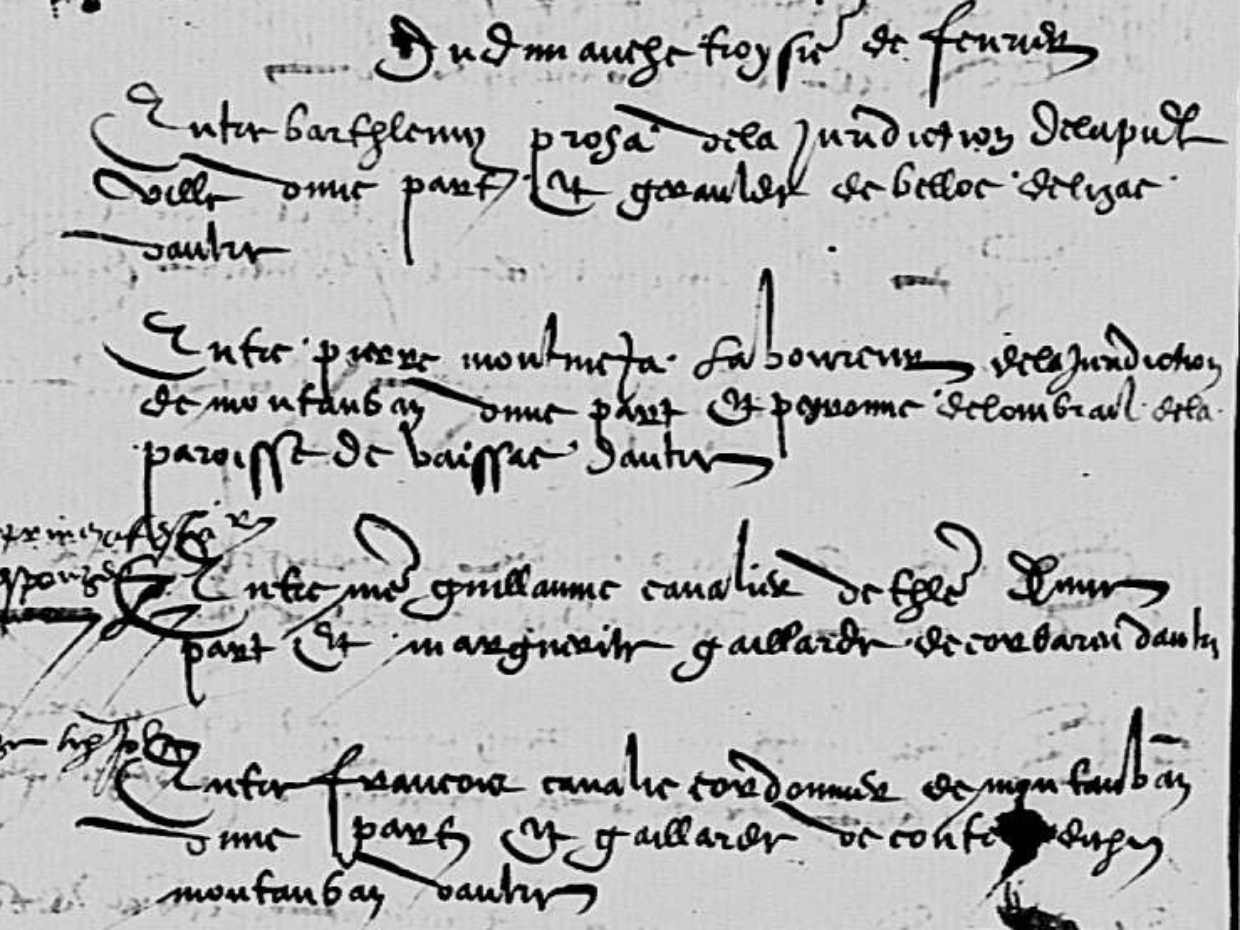 Du dimanche troysie de febvrier
Entre barthlemy prosa de la juridiction de la
ville dune part Et geraulde de belloc de lizac
daultre
Entre pierre moulineta laboureur de la Juridiction
de montauban dune part Et peyronne de lombrail de la
paroisse de vaissac daultre
Entre me guillaume cavalier de dune
part Et marguerite gaillarde de corbarieu daultre
Entre francois cavalie cordonnier de montauban
dune part Et gaillarde de conte dudict
montauban daultre